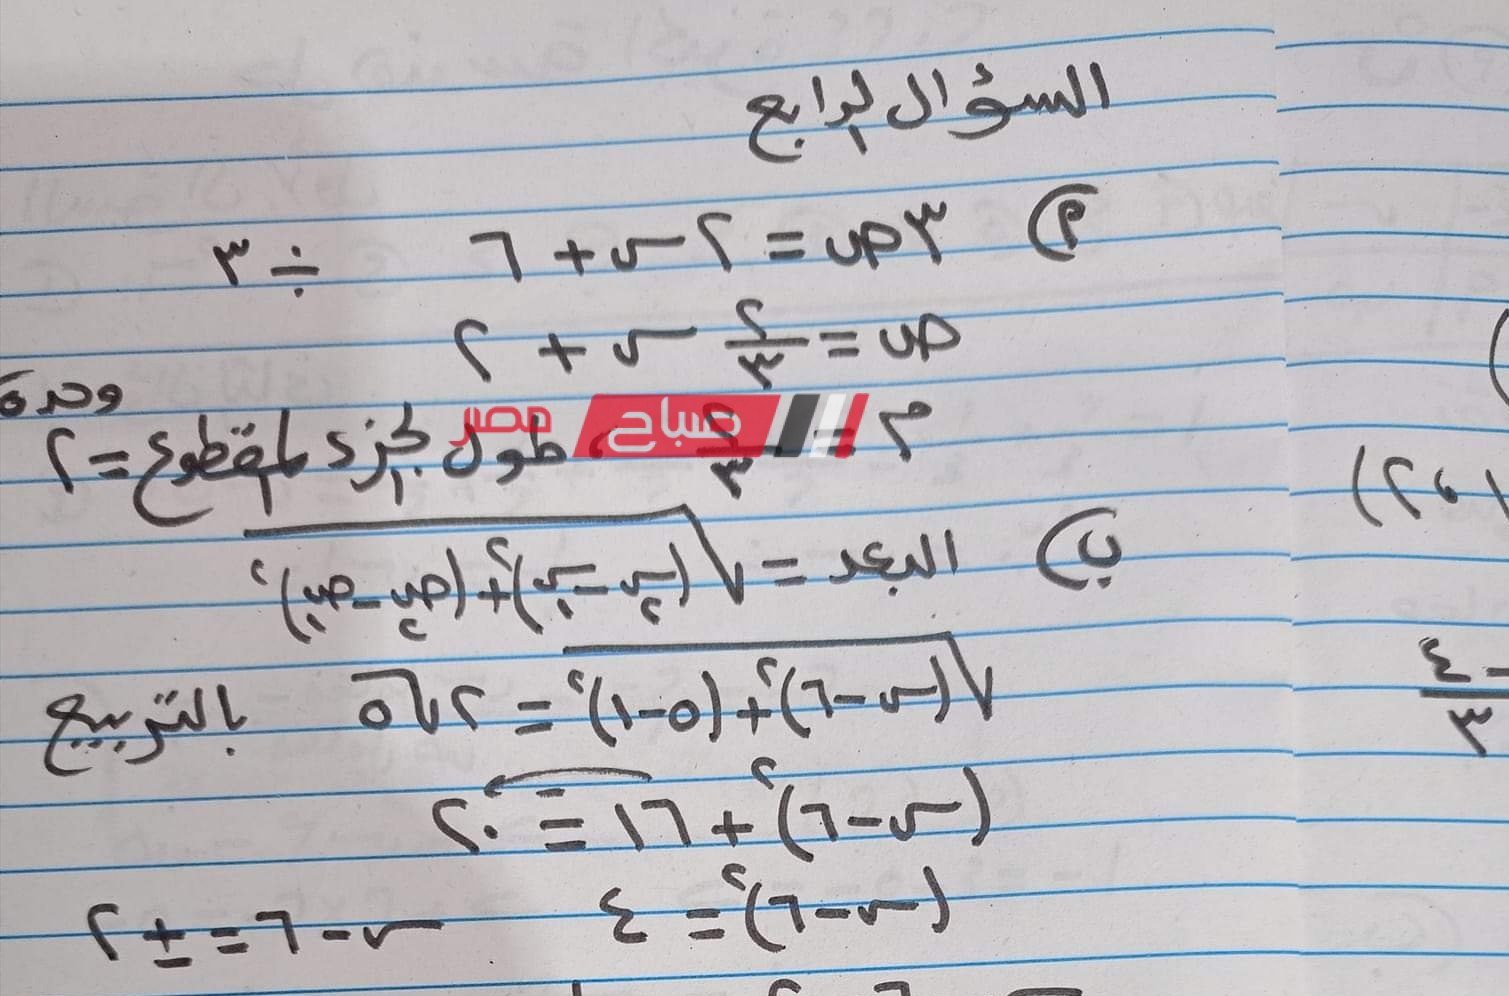 السؤال الرابع
(أ) ٣ص = ٢س + ٦ ÷ ٣
ص = ٢/٣ س + ٢
م = ٢/٣ ، طول الجزء المقطوع = ٢ وحدة
صباح مصر
(ب) البعد = √(س٢ - س١)٢ + (ص٢ - ص١)٢
√(س - ٦)٢ + (٥ - ١)٢ = ٢√٥ بالتربيع
(س - ٦)٢ + ١٦ = ٢٠
(س - ٦)٢ = ٤ س - ٦ = ± ٢
(٢،
- ٤/٣